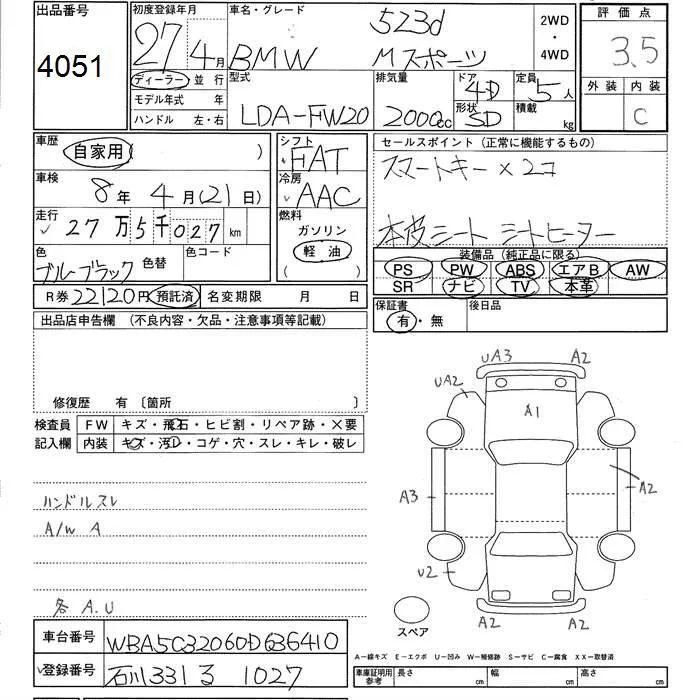 出品番号
4051
初度登録年月
27年 4月
ディーラー 並 行
モデル年式 年
ハンドル 左・右
車名・グレード
523d
BMW Mスポーツ
2WD
・
4WD
型式
LDA-FW20
排気量
2000cc
ドア
4D
形状
SD
定員
5人
積載
kg
評 価 点
3.5
外 装 内 装
C
車歴
自家用( )
車検
8年 4月(21日)
走行
27万5千027km
色
ブルーブラック
色替
色コード
R券 22120円 預託済 名変期限 月 日
シフト
FAT
冷房
AAC
燃料
ガソリン
(軽 油)
セールスポイント (正常に機能するもの)
スマートキー×2コ
本皮シート シートヒーター
装備品 (純正品に限る)
PS PW ABS エアB AW
SR ナビ TV 本革
保証書
有・無
後日品
出品店申告欄 (不良内容・欠品・注意事項等記載)
修復歴 有 〔箇所 〕
検査員
記入欄
FW キズ・飛石・ヒビ割・リペア跡・×要
内装 キズ・汚レ・コゲ・穴・スレ・キレ・破レ
ハンドルスレ
A/W A
各 A.U
車台番号
WBA5C32060D636410
登録番号
石川331る 1027
UA3 A2
UA2
A1
A3
A2
A2
U2
A2 A2
スペア
A-線キズ E-エクボ U-凹み W-補修跡 S-サビ C-腐食 XX-取替済
車庫証明用
参考
長さ cm 幅 cm 高さ cm